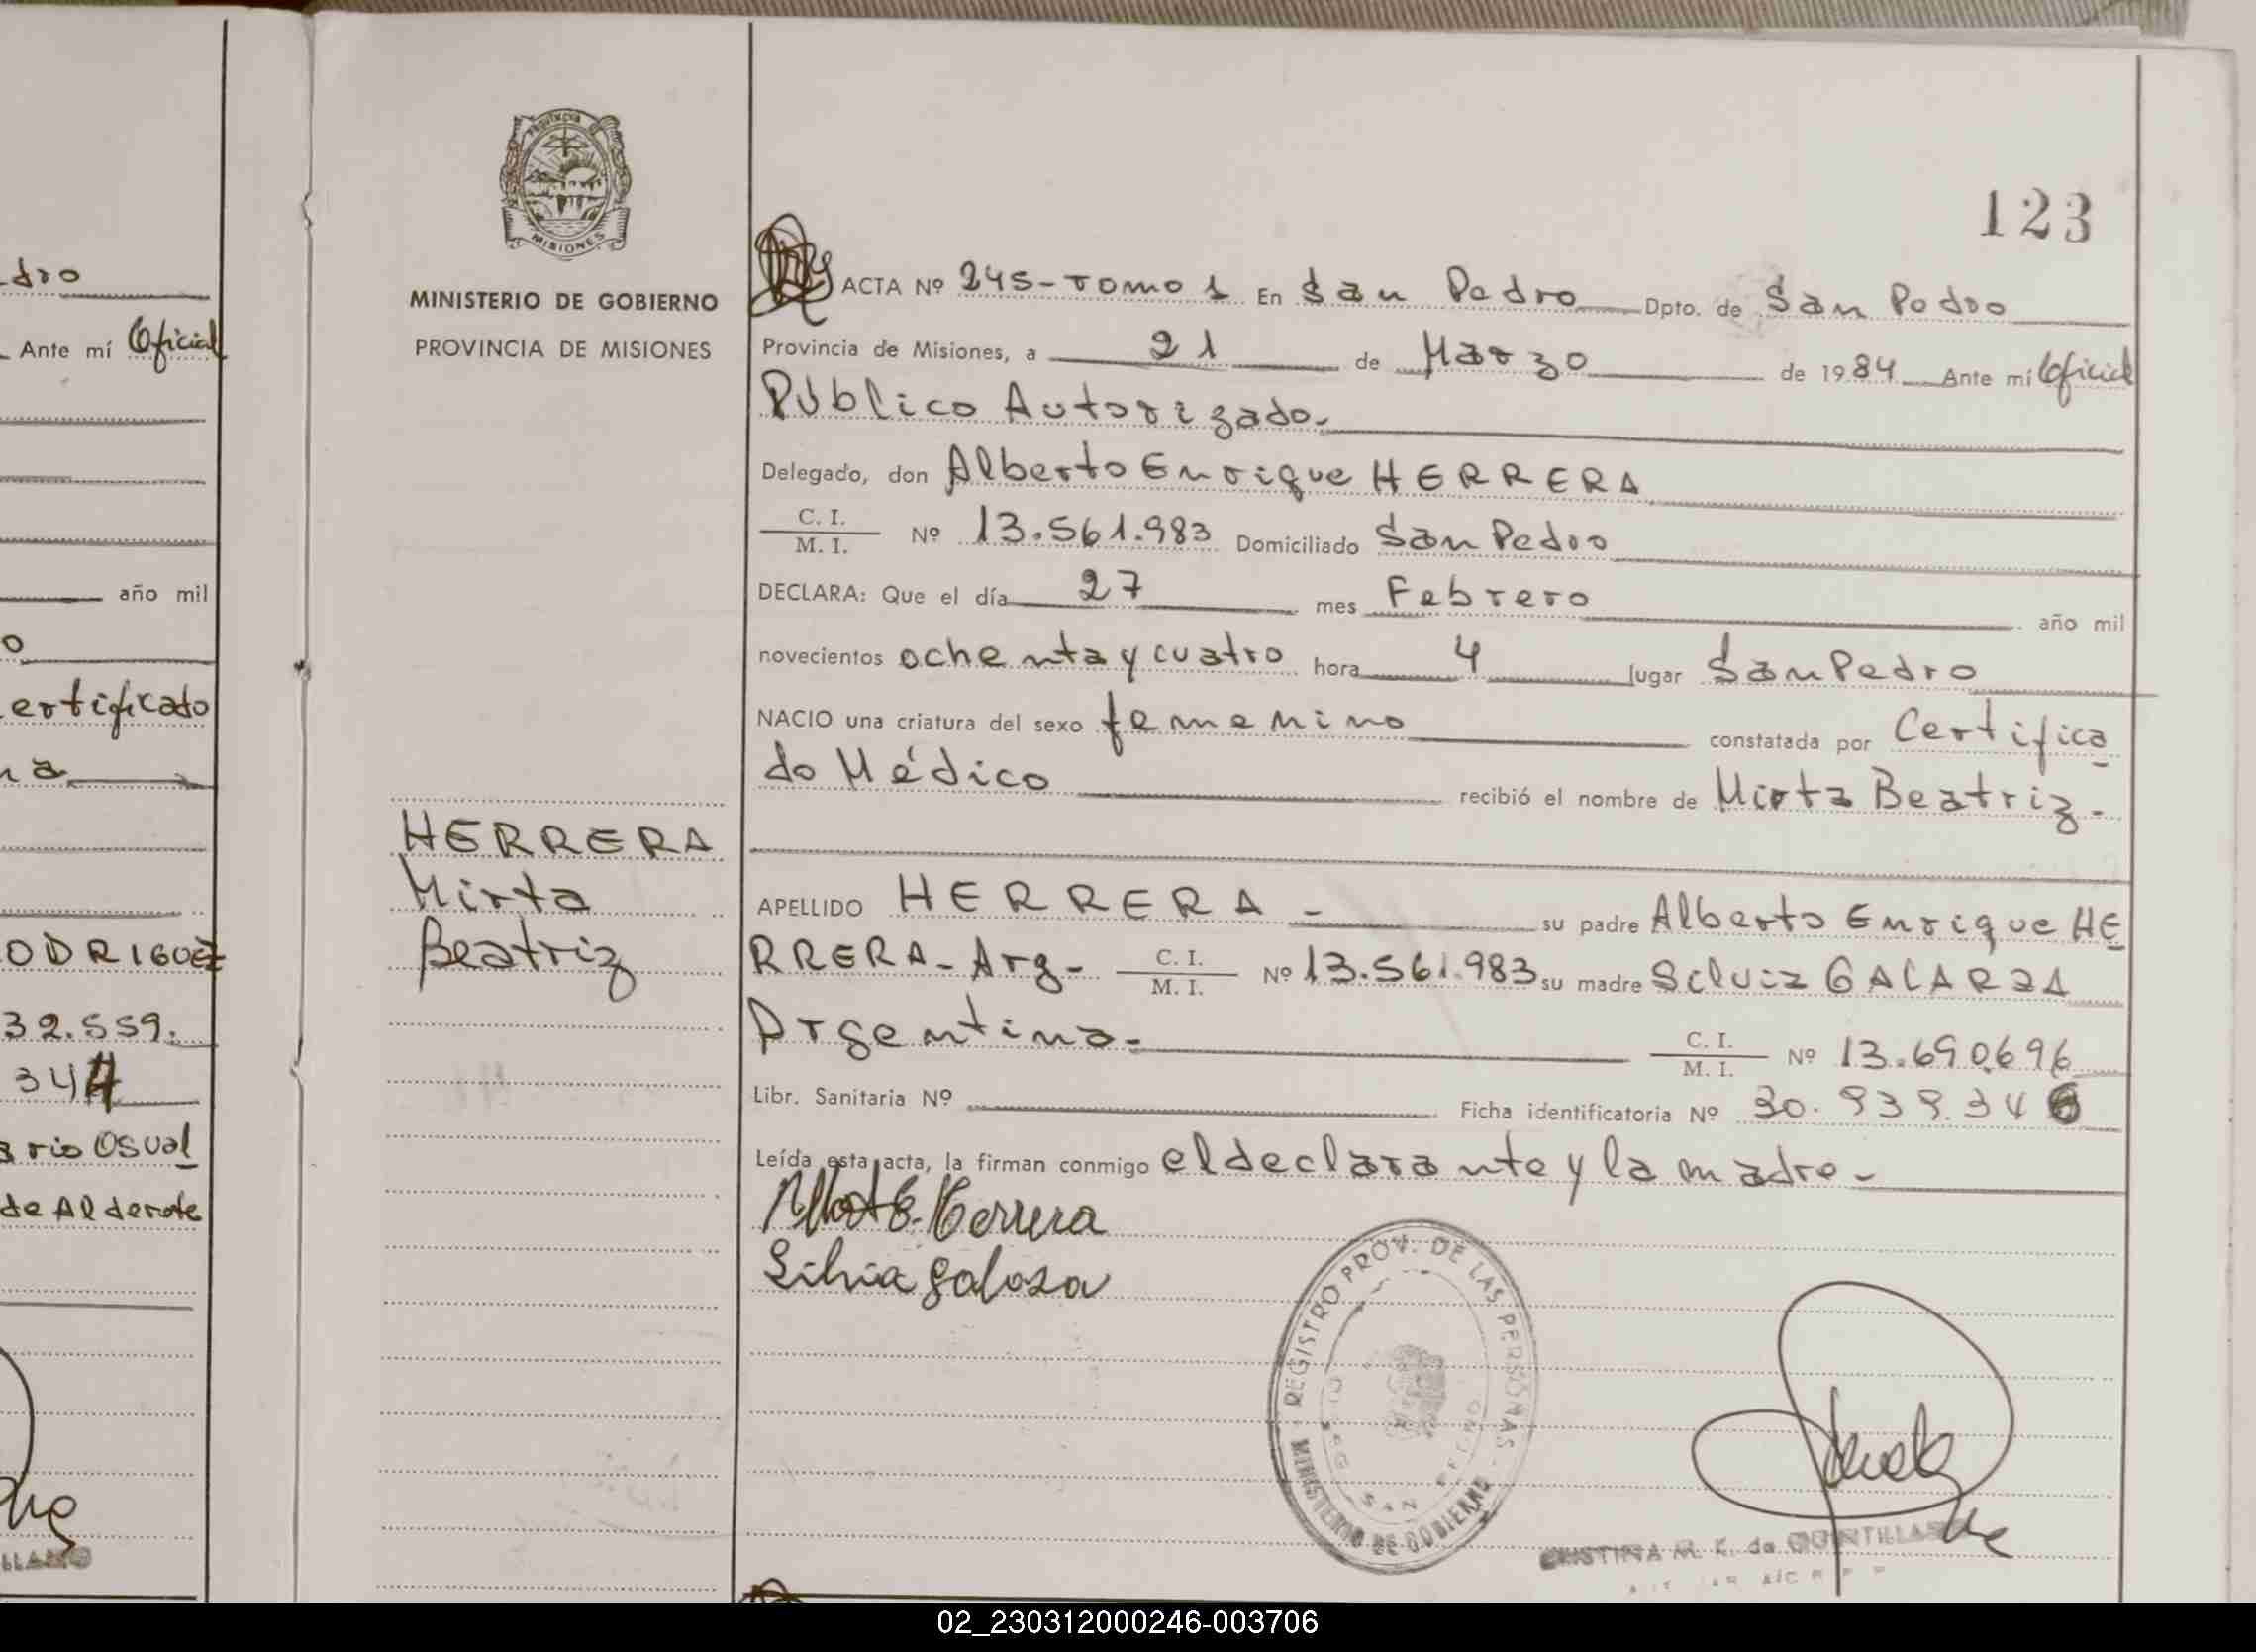 dro
Ante mí Oficial
año mil
o
ertificato
na
ODRIGUEZ
32.559.
344
rio Osual
de Alderete
LLANO
PROVINCIA
MISIONES
MINISTERIO DE GOBIERNO
PROVINCIA DE MISIONES
HERRERA
Mirta
Beatriz
123
ACTA Nº 245-Tomo 1 En San Pedro Dpto. de San Pedro
Provincia de Misiones, a 21 de Marzo de 1984 Ante mí Oficial
Público Autorizado.
Delegado, don Alberto Enrique HERRERA
C. I.
M. I. Nº 13.561.983 Domiciliado San Pedro
DECLARA: Que el día 27 mes Febrero año mil
novecientos ochenta y cuatro hora 4 lugar San Pedro
NACIO una criatura del sexo femenino constatada por Certifica
do Médico recibió el nombre de Mirta Beatriz-
APELLIDO HERRERA - su padre Alberto Enrique HE
RRERA-Arg- C. I. M. I. Nº 13.561.983 su madre Silvia GALARZA
Argentina- C. I. M. I. Nº 13.690.696
Libr. Sanitaria Nº Ficha identificatoria Nº 30.939.346
Leída esta acta, la firman conmigo el declarante y la madre-
Herrera
Silvia Galarza
REGISTRO PROV. DE LAS PERSONAS
SAN PEDRO
MINISTERIO DE GOBIERNO
CRISTINA M. K. de QUINTILLANO
02_230312000246-003706